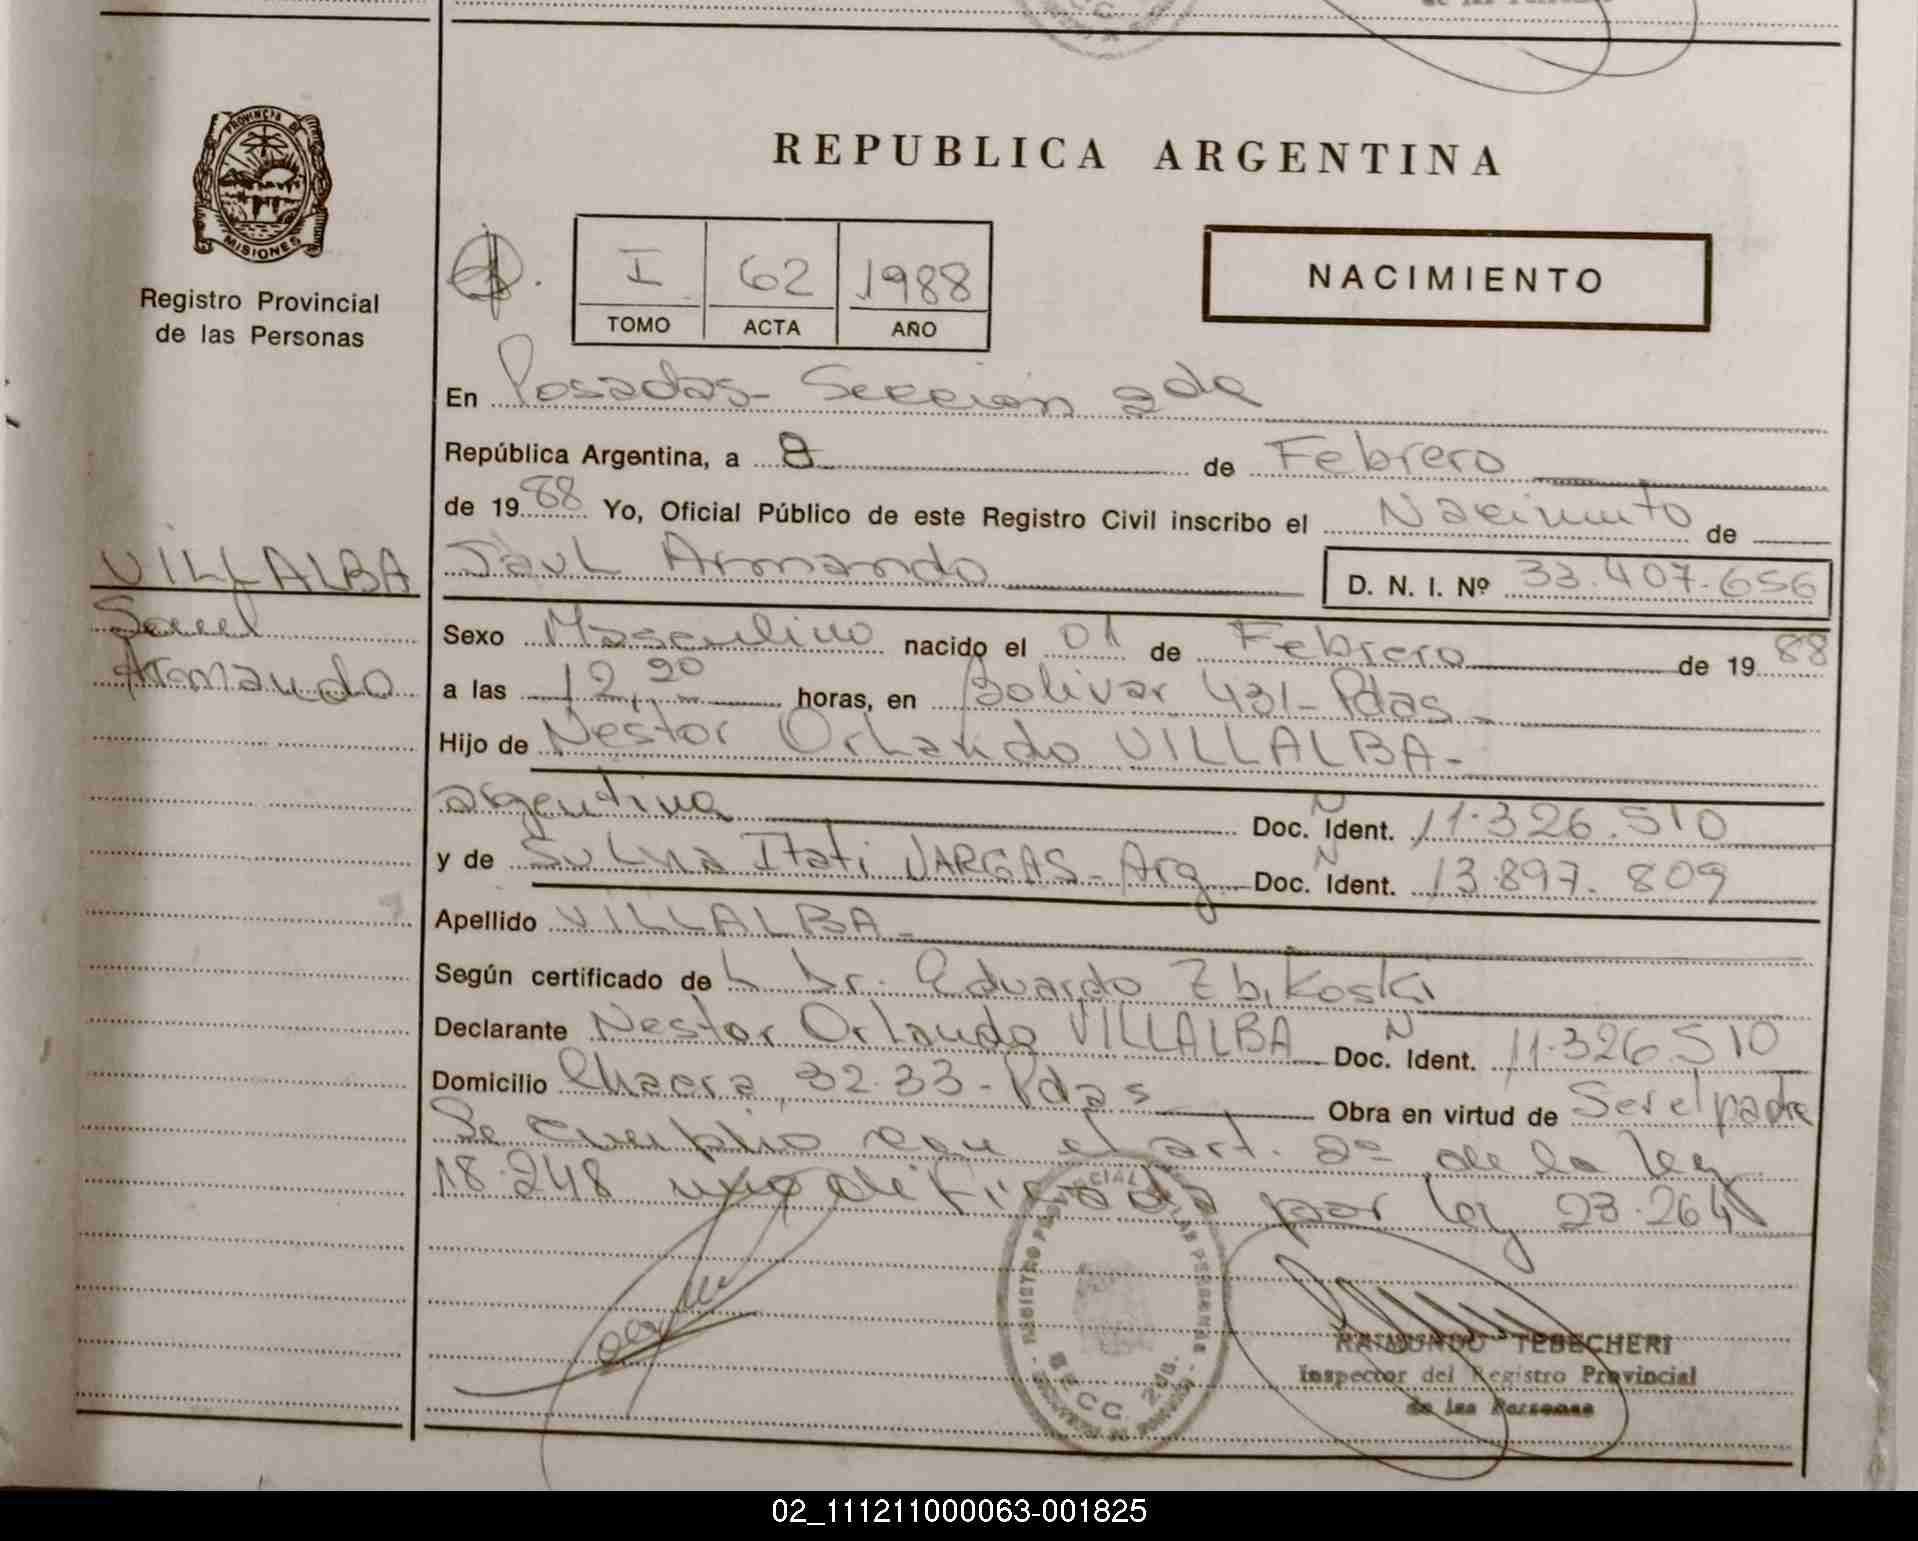 PROVINCIA DE
MISIONES
Registro Provincial
de las Personas
REPUBLICA ARGENTINA
I 62 1988
TOMO ACTA AÑO
NACIMIENTO
En Posadas- Sección 2da
República Argentina, a 8 de Febrero
de 1988 Yo, Oficial Público de este Registro Civil inscribo el Nacimiento de
VILLALBA
Saul
Armando
Saul Armando D. N. I. Nº 33.407.656
Sexo Masculino nacido el 01 de Febrero de 1988
a las 12,20 horas, en Bolivar 431- Pdas-
Hijo de Nestor Orlando VILLALBA-
argentina Doc. N Ident. 11.326.510
y de Itati VARGAS- Arg Doc. N Ident. 13.897.809
Apellido VILLALBA-
Según certificado de L Dr. Eduardo Zbikoski
Declarante Nestor Orlando VILLALBA N Doc. Ident. 11.326.510
Domicilio Chacra 32.33- Pdas Obra en virtud de Ser el padre
Se cumplio con el art. 2º de la ley
18.248 modificada por ley 23.264
REGISTRO PROVINCIAL DE LAS PERSONAS
SECC. 2da.
RAIMUNDO TEBECHERI
Inspector del Registro Provincial
de las Personas
02_111211000063-001825